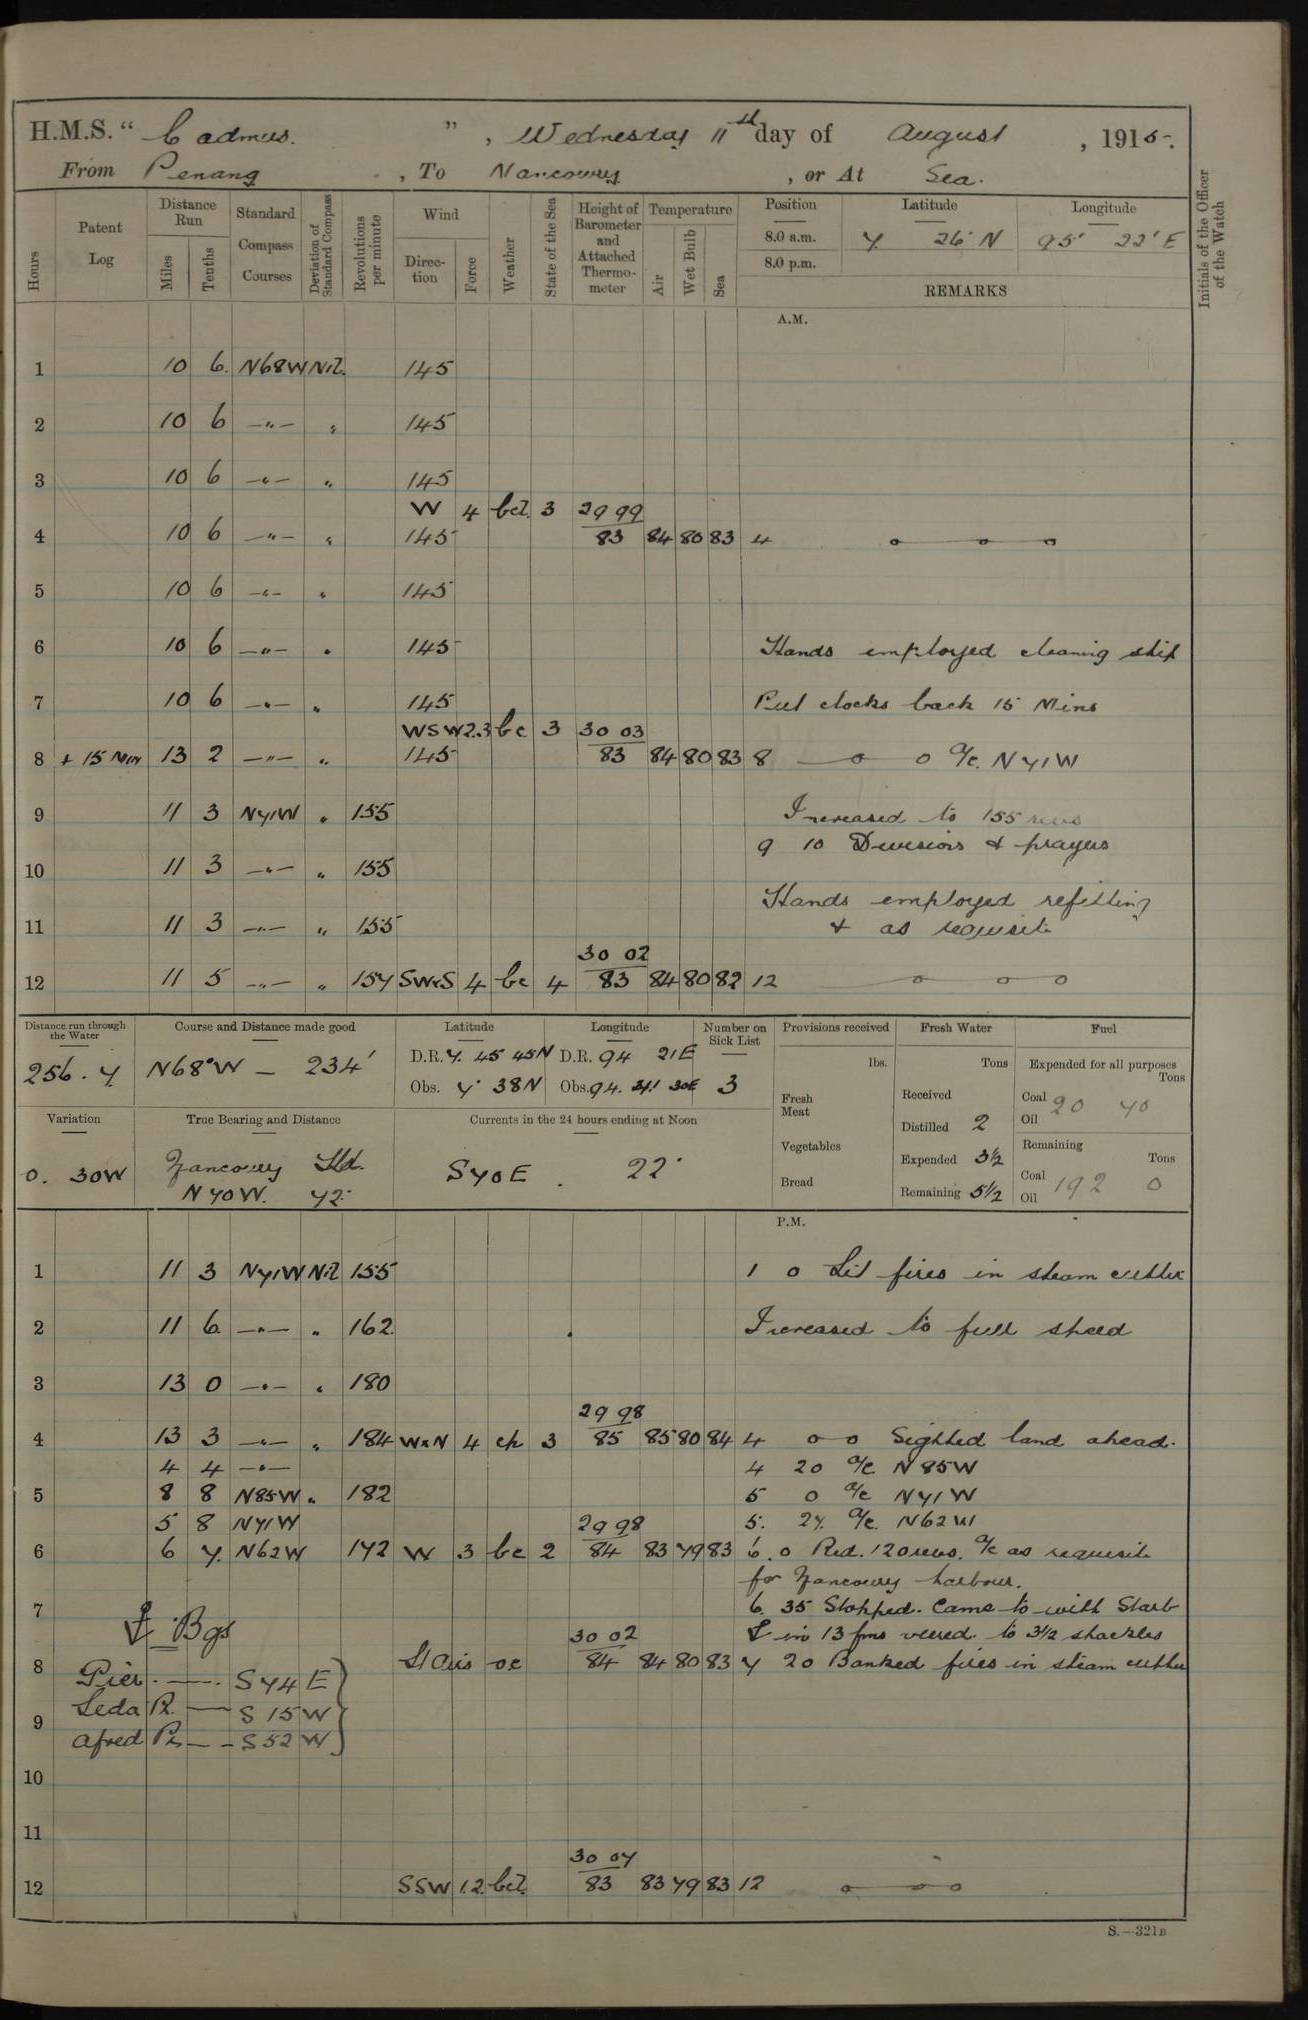 H.M.S. " Cadmus. ", Wednesday 11th day of August, 1915.
From Penang, To Nancowry, or At Sea.
Hours
Patent Log
Distance Run
Miles
Tenths
Standard Compass Courses
Deviation of Standard Compass
Revolutions per minute
Wind
Direction
Force
Weather
State of the Sea
Height of Barometer and Attached Thermometer
Temperature
Air
Wet Bulb
Sea
Position
Latitude
Longitude
8.0 a.m. 7 26 N 95° 22' E
8.0 p.m.
REMARKS
Initials of the Officer of the Watch
A.M.
1 10 6. N68W Nil. 145
2 10 6 —"— " 145
3 10 6 —"— " 145
W 4 bcl. 3 29 99
4 10 6 —"— " 145 83 84 80 83 4 o o o
5 10 6 —"— " 145
6 10 6 —"— " 145 Hands employed cleaning ship
7 10 6 —"— " 145 Put clocks back 15 Mins
WSW 2.3 bc 3 30 03
8 + 15 Min 13 2 —"— " 145 83 84 80 83 8 o o a/c. N71W
9 11 3 N71W " 155 Increased to 155 revs
9 10 Divisions & prayers
10 11 3 —"— " 155
Hands employed refitting
11 11 3 —"— " 155 & as requisite
30 02
12 11 5 —"— " 157 SWxS 4 bc 4 83 84 80 82 12 o o o
Distance run through the Water
256.7
Course and Distance made good
N68°W — 234'
Latitude
D.R. 7. 45 45N
Obs. 7° 38N
Longitude
D.R. 94 21E
Obs. 94. 31 30E
Number on Sick List
3
Provisions received
lbs.
Fresh Meat
Vegetables
Bread
Fresh Water
Tons
Received
Distilled 2
Expended 3½
Remaining 5½
Fuel
Expended for all purposes
Tons
Coal 20 70
Oil
Remaining
Tons
Coal 192 0
Oil
Variation
0. 30W
True Bearing and Distance
Nancowry Hd.
N70W. 72'
Currents in the 24 hours ending at Noon
S70E. 22'
P.M.
1 11 3 N71W Nil 155 1 0 Lit fires in steam cutter
2 11 6 —"— " 162 Increased to full speed
3 13 0 —"— " 180
29 98
4 13 3 —"— " 184 WxN 4 cp 3 85 85 80 84 4 o o Sighted land ahead.
4 4 —"— 4 20 a/c N85W
5 8 8 N85W " 182 5 0 a/c N71W
5 8 N71W 29 98 5. 27. a/c. N62W
6 6 7. N62W 172 W 3 bc 2 84 83 79 83 6.0 Red. 120 revs. a/c as requisite
for Nancowry harbour.
7 6. 35 Stopped. Came to with Starb
⚓ Bgs 30 02 ⚓ in 13 fms veered to 3½ shackles
8 Lt Airs oc 84 84 80 83 7 20 Banked fires in steam cutter
Pier —— S74E
Leda Pt. —— S15W
9
Afred Pt —— S52W
10
11
30 07
12 SSW 1.2 bcl. 83 83 79 83 12 o o o
S.—321B